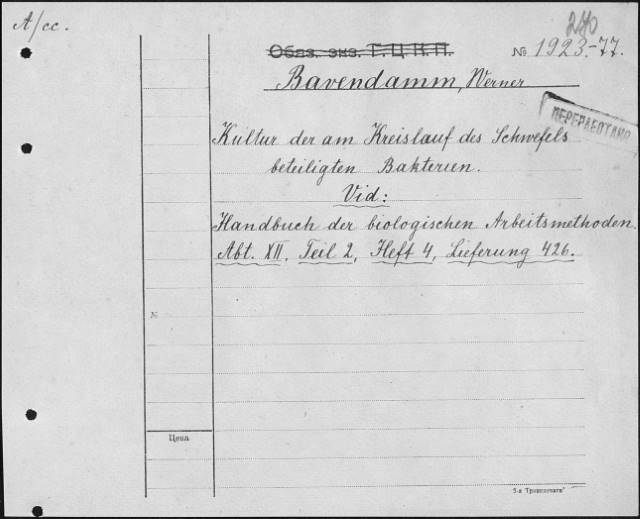 A/cc.
240
Обяз. экз. Г.Ц.К.П.
№ 1923.-77.
Bavendamm, Werner
ПЕРЕРАБОТАНО
Kultur der am Kreislauf des Schwefels
beteiligten Bakterien.
Vid:
Handbuch der biologischen Arbeitsmethoden.
Abt. XII. Teil 2, Heft 4, Lieferung 426.
№
Цена